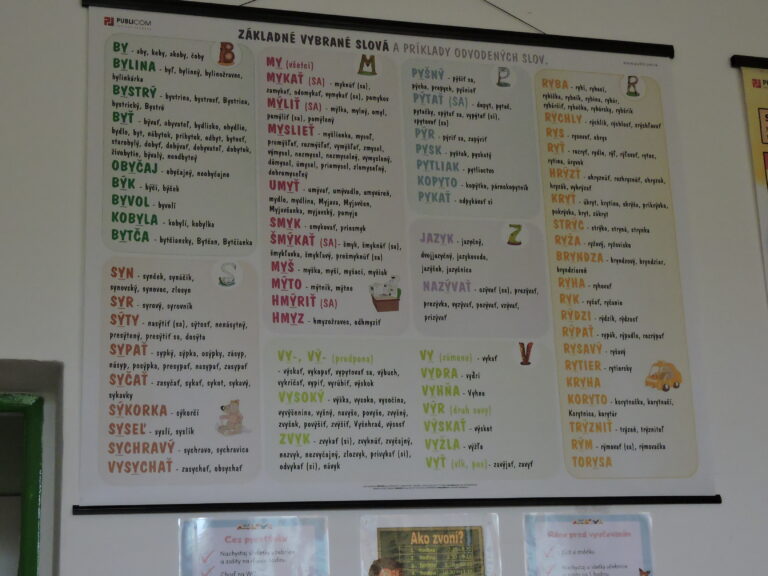 PUBLICOM
ZÁKLADNÉ VYBRANÉ SLOVÁ A PRÍKLADY ODVODENÝCH SLOV.
B
BY - aby, keby, akoby, čoby
BYLINA - byľ, bylinný, bylinožravec,
bylinkárka
BYSTRÝ - bystrina, bystrosť, Bystrina,
bystrický, Bystré
BYŤ - bývať, obyvateľ, bydlisko, obydlie,
bydlo, byt, nábytok, príbytok, odbyt, bytosť,
starobylý, dobyť, dobývať, dobyvateľ, dobytok,
živobytie, bývalý, neodbytný
OBYČAJ - obyčajný, neobyčajne
BÝK - býčí, býček
BYVOL - byvolí
KOBYLA - kobylí, kobylka
BYTČA - bytčiansky, Bytčan, Bytčianka
S
SYN - synček, synáčik,
synovský, synovec, zlosyn
SYR - syrový, syrovník
SÝTY - nasýtiť (sa), sýtosť, nenásytný,
presýtený, presýtiť sa, dosýta
SYPAŤ - sypký, sýpka, osýpky, zásyp,
násyp, posýpka, presypať, nasypať, zasypať
SYČAŤ - zasyčať, sykať, sykot, sykavý,
sykavky
SÝKORKA - sýkorčí
SYSEĽ - syslí, syslík
SYCHRAVÝ - sychravo, sychravica
VYSYCHAŤ - zasychať, obsychať
M
MY (všetci)
MYKAŤ (SA) - myknúť (sa),
zamykať, odomykať, vymykať (sa), pamykov
MÝLIŤ (SA) - mýlka, mylný, omyl,
pomýliť (sa), pomýlený
MYSLIEŤ - myšlienka, mysеľ,
premýšľať, rozmýšľať, vymýšľať, zmysel,
výmysel, nezmysel, nezmyselný, vymyslený,
dômysel, úmysel, priemysel, zlomyseľný,
dobromyseľný
UMYŤ - umývať, umývadlo, umyváreň,
mydlo, mydlina, Myjava, Myjavčan,
Myjavčanka, myjavský, pomyje
SMYK - šmykovať, priesmyk
ŠMÝKAŤ (SA) - šmyk, šmyknúť (sa),
šmykľavka, šmykľavý, prešmyknúť (sa)
MYŠ - myška, myší, myšací, myšiak
MÝTO - mýtnik, mýtne
HMÝRIŤ (SA)
HMYZ - hmyzožravec, odhmyziť
P
PYŠNÝ - pýšiť sa,
pýcha, prepych, pyšnieť
PÝTAŤ (SA) - dopyt, pýtač,
pytačky, spýtať sa, vypýtať (si),
opytovať (sa)
PÝR - pýriť sa, zapýriť
PYSK - pyštek, pyskatý
PYTLIAK - pytliactvo
KOPYTO - kopýtko, párnokopytník
PYKAŤ - odpykávať si
Z
JAZYK - jazyčný,
dvojjazyčný, jazykoveda,
jazýček, jazyčnica
NAZÝVAŤ - ozývať (sa), prezývať,
prezývka, vyzývať, pozývať, vzývať,
prizývať
V
VY-, VÝ- (predpona)
- výskať, vykopať, vypytovať sa, výbuch,
vykričať, vypiť, vyrábiť, výskok
VYSOKÝ - výška, vysoko, vysočina,
vyvýšenina, vyšný, navyše, povyše, zvýšný,
zvyšok, povýšiť, zvýšiť, Vyšehrad, výsosť
ZVYK - zvykať (si), zvyknúť, zvyčajný,
nezvyk, nezvyčajný, zlozvyk, privykať (si),
odvykať (si), návyk
VY (zámeno) - vykať
VYDRA - vydrí
VYHŇA - Vyhne
VÝR (druh sovy)
VÝSKAŤ - výskot
VYŽLA - výžľa
VYŤ (vlk, pes) - zavýjať, zavyť
R
RYBA - rybí, rybací,
rybička, rybník, rybina, rybár,
rybárčiť, rybačka, rybársky, rybárik
RÝCHLY - rýchlik, rýchlosť, zrýchľovať
RYS - rysovať, obrys
RYŤ - rozryť, rydlo, rýľ, rýľovať, rytec,
rytina, úryvok
HRÝZŤ - ohryznúť, rozhryznúť, ohryzok,
hryzák, vyhrýzať
KRYŤ - úkryt, krytina, skrýša, prikrývka,
pokrývka, kryt, zákryt
STRÝC - strýko, stryná, strynka
RYŽA - ryžový, ryžovisko
BRYNDZA - bryndzový, bryndziar,
bryndziareň
RYHA - ryhovať
RYK - ryčať, ryčanie
RÝDZI - rýdzik, rýdzosť
RÝPAŤ - rypák, rýpadlo, rozrýpať
RYŠAVÝ - ryšavý
RYTIER - rytiersky
KRYHA
KORYTO - korytnačka, korytnačí,
Korytnica, korytár
TRÝZNIŤ - trýzeň, trýzniteľ
RÝM - rýmovať (sa), rýmovačka
TORYSA
Cez prestávku
Nachystaj si všetky učebnice
a zošity na ďalšiu hodinu.
Choď na WC
Ako zvoní?
Ráno pred vyučovaním